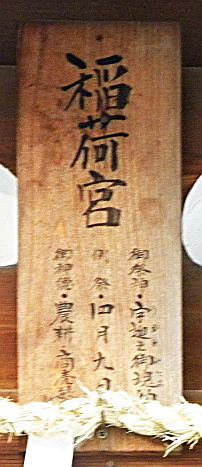 稲荷宮
御祭神・宇迦之御魂
例祭・四月九日
御神徳・農耕・商売